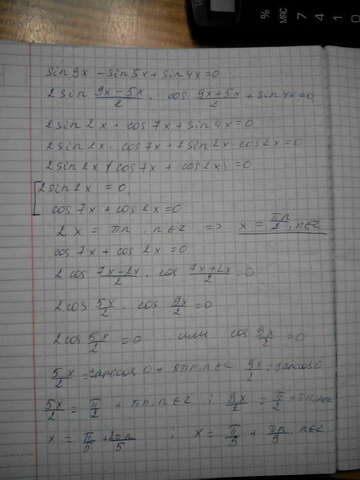 %
7 4
MRC 0
sin 9x - sin 5x + sin 4x = 0
2 sin (9x-5x)/2 · cos (9x+5x)/2 + sin 4x = 0
2 sin 2x · cos 7x + sin 4x = 0
2 sin 2x · cos 7x + 2 sin 2x · cos 2x = 0
2 sin 2x (cos 7x + cos 2x) = 0
[2 sin 2x = 0,
cos 7x + cos 2x = 0
2x = πn, n∈z => x = πn/2, n∈z
cos 7x + cos 2x = 0
2 cos (7x-2x)/2 · cos (7x+2x)/2 = 0
2 cos 5x/2 · cos 9x/2 = 0
2 cos 5x/2 = 0 или cos 9x/2 = 0
5x/2 = arccos 0 + πn, n∈z 9x/2 = arccos 0
5x/2 = π/2 + πn, n∈z ; 9x/2 = π/2 + πn, n∈z
x = π/5 + 2πn/5 , x =